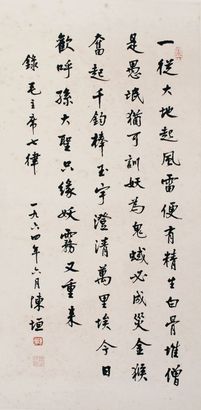 一從大地起風雷便有精生白骨堆僧
是愚氓猶可訓妖為鬼蜮必成災金猴
奮起千鈞棒玉宇澄清萬里埃今日
歡呼孫大聖只緣妖霧又重來
錄毛主席七律
一九六四年六月陳垣